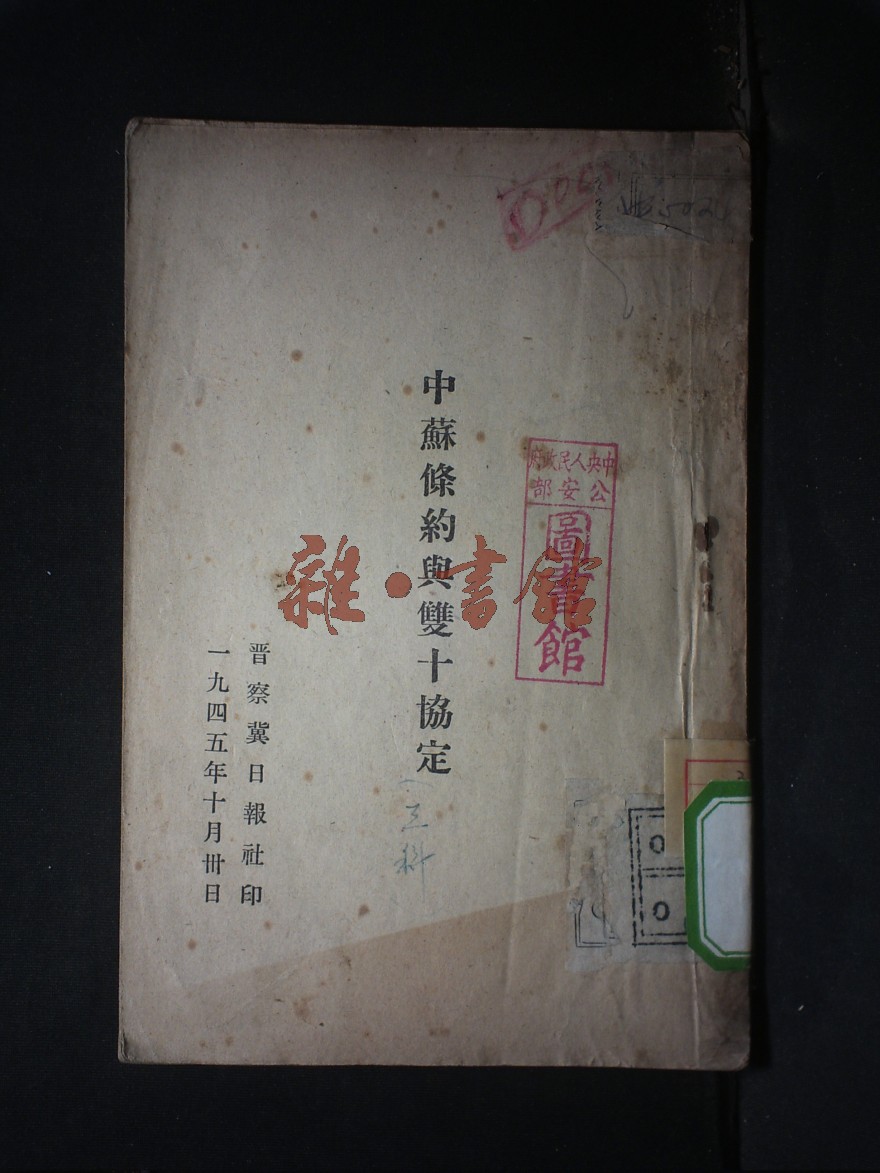 中蘇條約與雙十協定
晋察冀日報社印
一九四五年十月卅日
中央人民政府
公安部
圖書館
雜·書館
三科